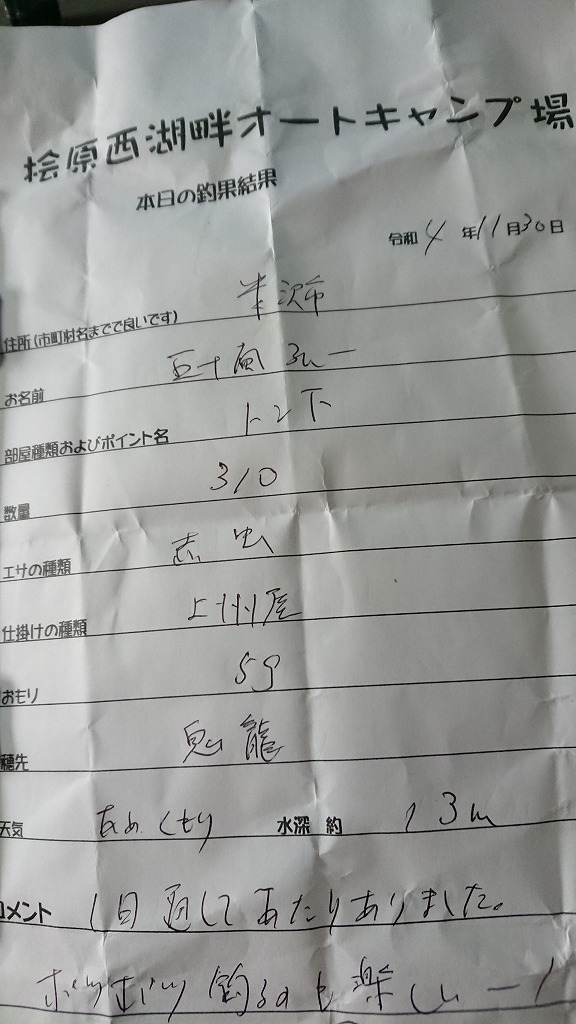 桧原西湖畔オートキャンプ場
本日の釣果結果
令和 4 年 11 月 30 日
住所(市町村名までで良いです) 米沢市
お名前 五十嵐 弘一
部屋種類およびポイント名 トンド
数量 310
エサの種類 赤虫
仕掛けの種類 上州屋
おもり 5g
穂先 鬼龍
天気 あめくもり 水深 約 13m
コメント 1日通してあたりありました。
ポツポツ釣るのも楽しいー!